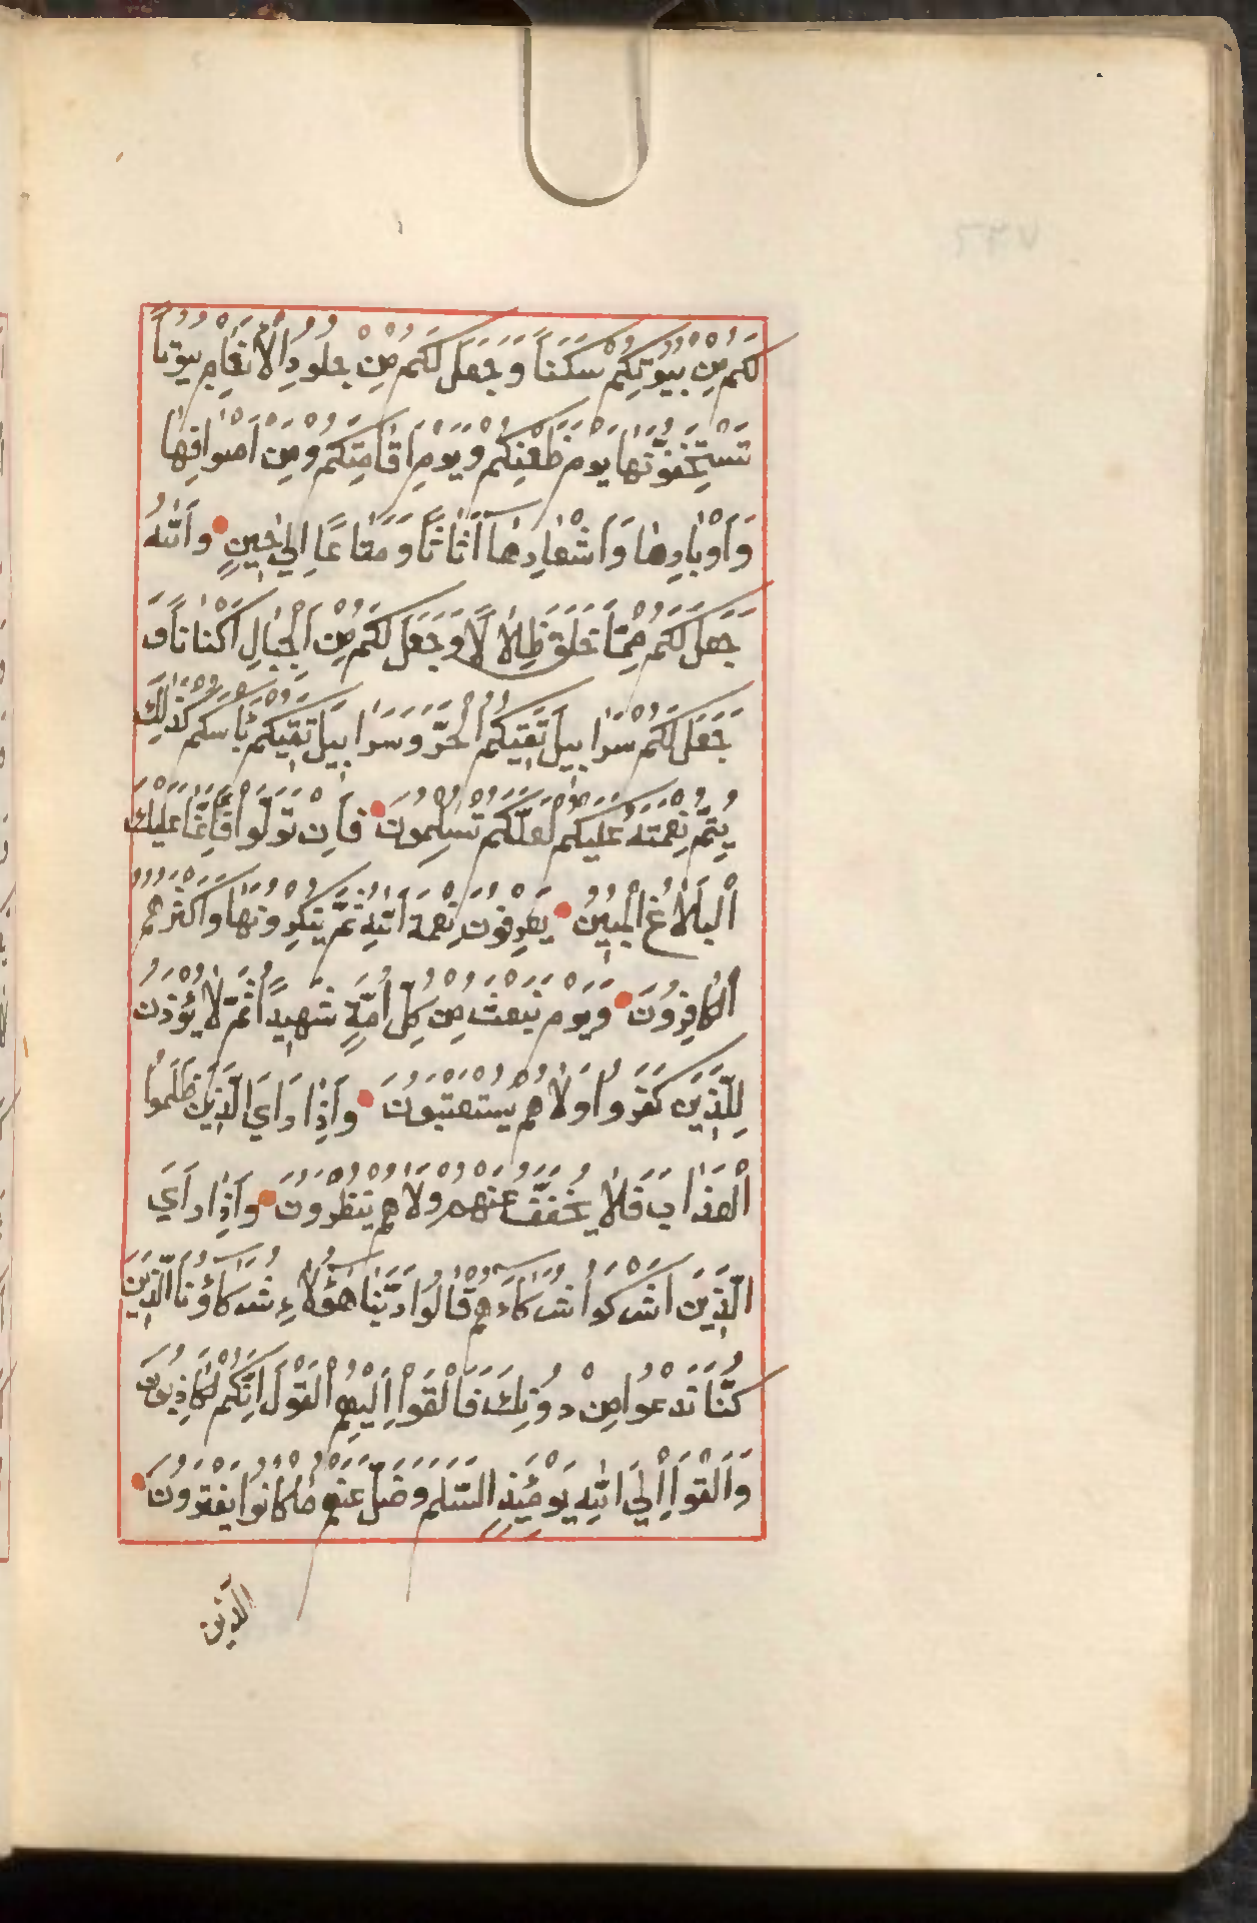 لَكُم مِنْ بُيُوتِكُمْ سَكَنَاً وَجَعَلَ لَكُم مِنْ جُلُودِ الْأَنْعَامِ بُيُوتَاً
تَسْتَخِفُّونَهَا يَوْمَ ظَعْنِكُمْ وَيَوْمَ اِقَامَتِكُمْ وَمِنْ اَصْوَافِهَا
وَاَوْبَارِهَا وَاَشْعَارِهَا اَثَاثَاً وَمَتَاعَاً اِلَى حِينٍ وَاَللّٰهُ
جَعَلَ لَكُمْ مِمَّا خَلَقَ ظِلَالَاً وَجَعَلَ لَكُمْ مِنَ الْجِبَالِ اَكْنَانَاً وَ
جَعَلَ لَكُمْ سَرَابِيلَ تَقِيكُمُ الْحَرَّ وَسَرَابِيلَ تَقِيكُمْ بَأْسَكُمْ كَذٰلِكَ
يُتِمُّ نِعْمَتَهُ عَلَيْكُمْ لَعَلَّكُمْ تُسْلِمُونَ فَاِنْ تَوَلَّوْا فَاِنَّمَا عَلَيْكَ
الْبَلَاغُ الْمُبِينُ يَعْرِفُونَ نِعْمَةَ اَللّٰهِ ثُمَّ يُنْكِرُونَهَا وَاَكْثَرُهُمُ
الْكَافِرُونَ وَيَوْمَ نَبْعَثُ مِنْ كُلِّ اُمَّةٍ شَهِيدَاً ثُمَّ لَا يُؤْذَنُ
لِلَّذِينَ كَفَرُوا وَلَا هُمْ يُسْتَعْتَبُونَ وَاِذَا رَاَيَ الَّذِينَ ظَلَمُوا
الْعَذَابَ فَلَا يُخَفَّفُ عَنْهُمْ وَلَا هُمْ يُنْظَرُونَ وَاِذَا رَاَيَ
الَّذِينَ اَشْرَكُوا شُرَكَاءَهُمْ قَالُوا رَبَّنَا هٰؤُلَاءِ شُرَكَاؤُنَا الَّذِينَ
كُنَّا نَدْعُوا مِنْ دُونِكَ فَاَلْقَوْا اِلَيْهِمُ الْقَوْلَ اِنَّكُمْ لَكَاذِبُونَ
وَاَلْقَوْا اِلَى اَللّٰهِ يَوْمَئِذٍ السَّلَمَ وَضَلَّ عَنْهُمْ مَا كَانُوا يَفْتَرُونَ
الَّذِينَ